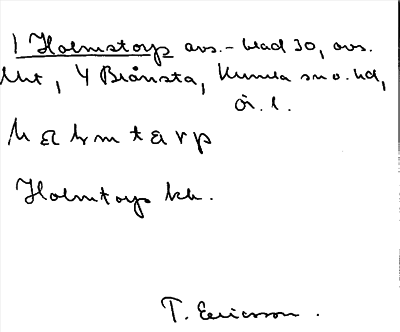 1 Holmstorp avs. - blad 30, avs.
Utt, Y Brånsta, Kumla sn o. hd,
Ör. l.
hɑlmtarp
Holmtorp kk.
T. Ericsson.